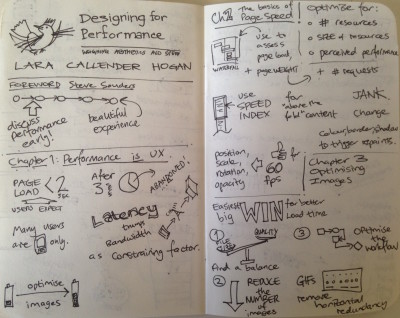 Designing for
Performance
WEIGHING AESTHETICS AND SPEED
LARA CALLENDER HOGAN
FOREWORD Steve Souders
discuss
performance
early!
beautiful
experience.
Chapter 1: Performance is UX
PAGE
LOAD < 2 sec
USERS EXPECT
After
3s
ABANDONED!
Many
users
are only.
Latency
trumps
Bandwidth
as constraining factor.
optimise
images
Ch 2 The basics of
Page Speed
WATERFALL
use to
assess
page load,
+ page WEIGHT
Optimise for:
# resources
SIZE of resources
perceived performance
+ # requests
USE
SPEED
INDEX
for
"above the
fold" content
JANK
Change
colour/border/shadow
to trigger repaints.
position,
scale,
rotation,
opacity
60
fps
Chapter 3
Optimising
Images
Easiest
big WIN for better
load time
1
FILE
SIZE
QUALITY
And a balance
3
Optimise
this
workflow
2
REDUCE
the
NUMBER
of images
GIFs
remove
horizontal
redundancy